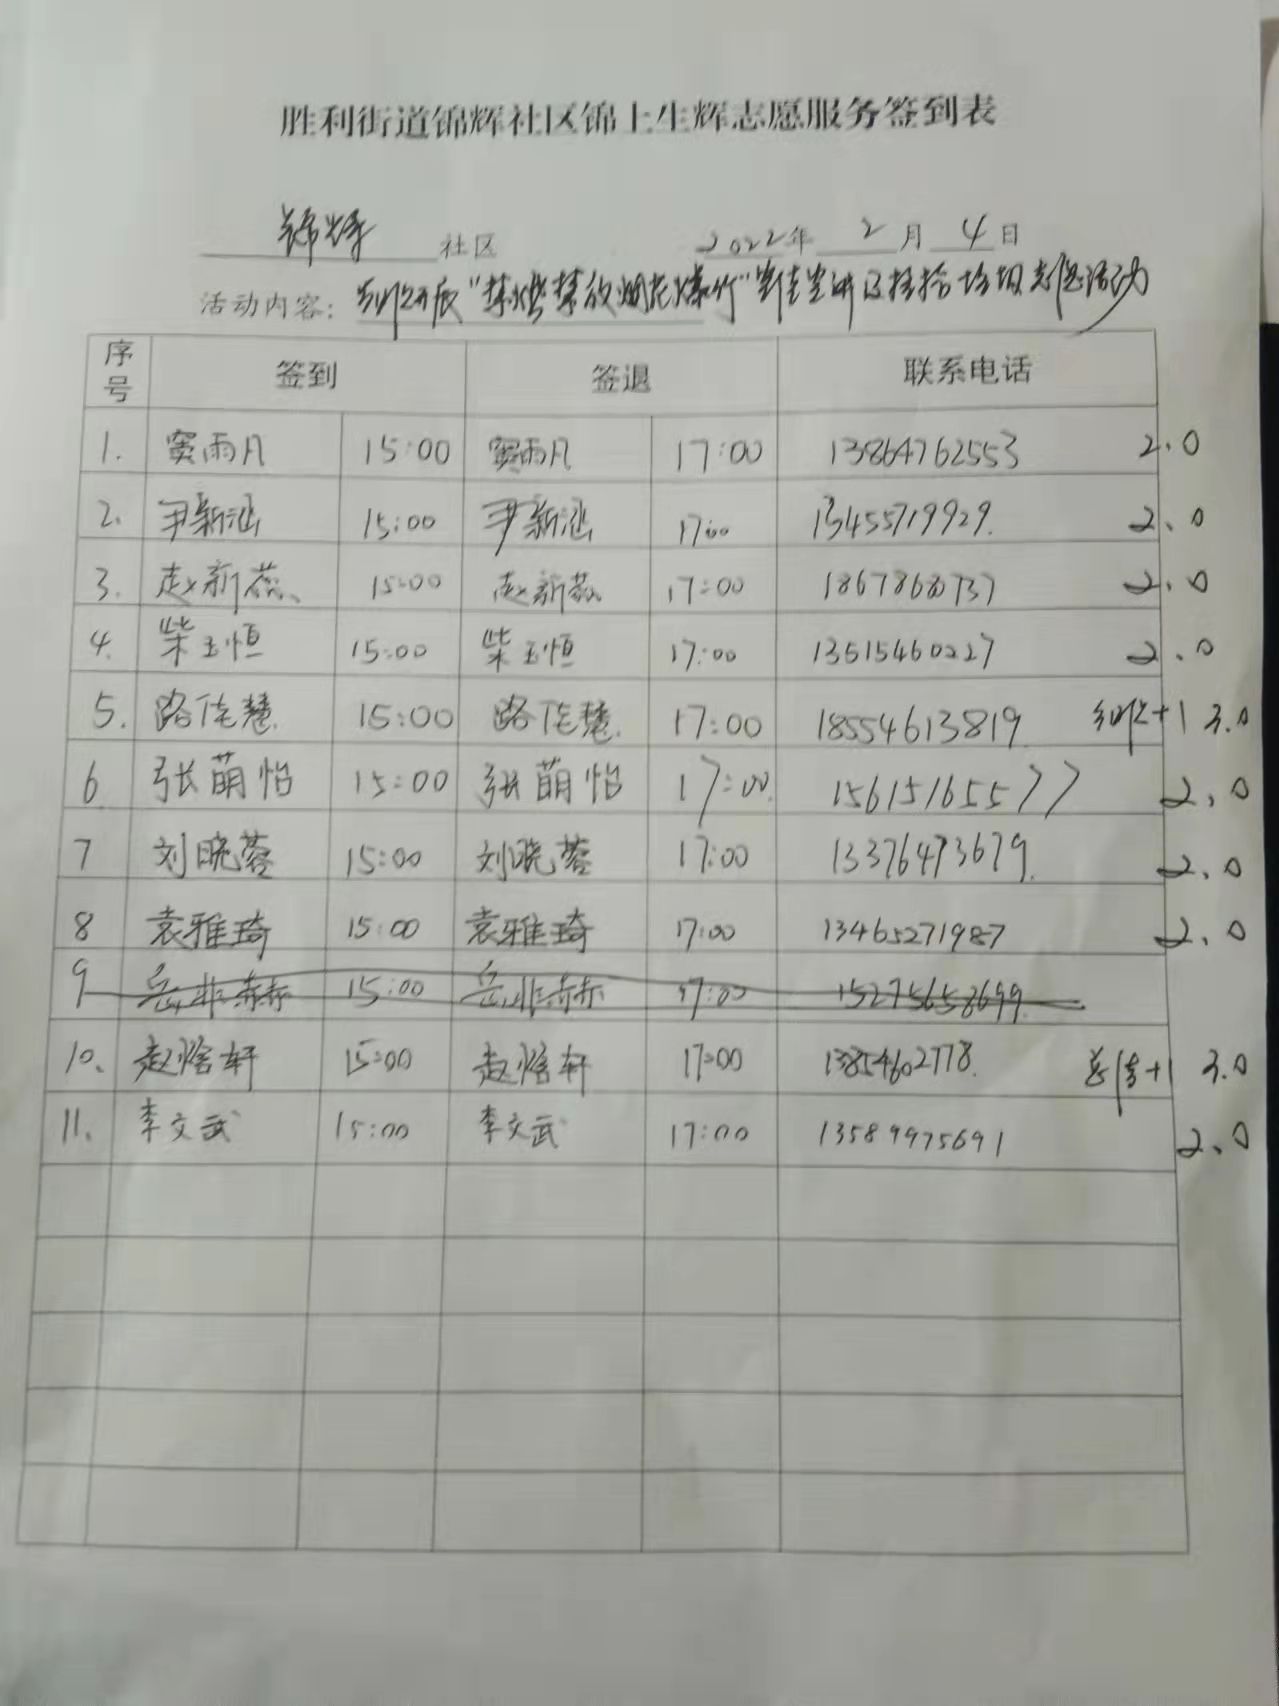 胜利街道锦辉社区锦上生辉志愿服务签到表
锦辉 社区 2022年 2 月 4 日
活动内容： 开展“禁燃禁放烟花爆竹” 宣讲及捡拾垃圾志愿活动
序号 签到 签退 联系电话
1. 窦雨凡 15:00 窦雨凡 17:00 13864762553 2.0
2. 尹新涵 15:00 尹新涵 17:00 13455719929. 2.0
3. 赵新蕊、 15:00 赵新蕊 17:00 2.0
4. 柴玉恒 15:00 柴玉恒 17:00 13615460227 2.0
5. 路佳慧. 15:00 路佳慧. 17:00 18554613819 +1 3.0
6 张萌怡 15:00 张萌怡 17:00. 15615165577 2.0
7 刘晓蓉 15:00 刘晓蓉 17:00 13376473679. 2.0
8 袁雅琦 15:00 袁雅琦 17:00 13465271987 2.0
9 岳非赫 15:00 岳非赫 17:00 15275658699.
10. 赵焓轩 15:00 赵焓轩 17:00 13854602778. 总结+1 3.0
11. 李文武 15:00 李文武 17:00 13589975691 2.0